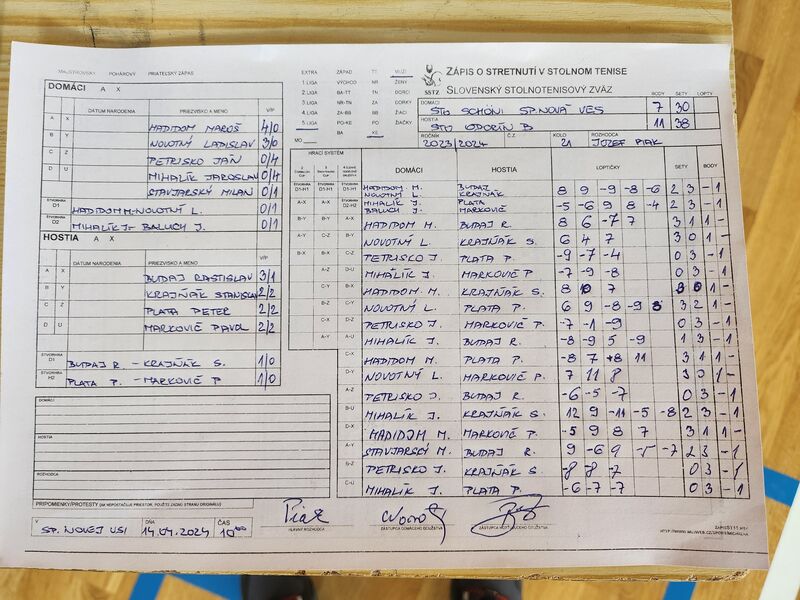 MAJSTROVSKÝ POHÁROVÝ PRIATEĽSKÝ ZÁPAS
DOMÁCI A X
DÁTUM NARODENIA PRIEZVISKO A MENO V/P
A X HADIDOM MAROŠ 4/0
B Y NOVOTNÝ LADISLAV 3/0
C Z PETRISKO JÁN 0/4
D U MIHALÍK JAROSLAV 0/4
STAVJARSKÝ MILAN 0/1
ŠTVORHRA D1 HADIDOM M.-NOVOTNÝ L. 0/1
ŠTVORHRA D2 MIHALÍK J.- BALUCH J. 0/1
HOSTIA A X
DÁTUM NARODENIA PRIEZVISKO A MENO V/P
A X BUDAJ RASTISLAV 3/1
B Y KRAJŇÁK STANISLAV 2/2
C Z PLATA PETER 2/2
D U MARKOVIČ PAVOL 2/2
ŠTVORHRA BUDAJ R. - KRAJŇÁK S. 1/0
ŠTVORHRA H2 PLATA P. - MARKOVIČ P 1/0
DOMÁCI
HOSTIA
ROZHODCA
PRIPOMIENKY/PROTESTY (AK NEPOSTAČUJE PRIESTOR, POUŽITE ZADNÚ STRANU ORIGINÁLU)
V SP. NOVEJ VSI DŇA 14.04.2024 ČAS 10⁰⁰
EXTRA ZÁPAD TT MUŽI
1.LIGA VÝCHOD NR ŽENY
2.LIGA BA-TT TN DORCI
3.LIGA NR-TN ZA DORKY
4.LIGA ZA-BB BB ŽIACI
5.LIGA PO-KE PO ŽIAČKY
MO BA KE
SSTZ
ZÁPIS O STRETNUTÍ V STOLNOM TENISE
SLOVENSKÝ STOLNOTENISOVÝ ZVÄZ
BODY SETY LOPTY
DOMÁCI STO SCHÖNI SP.NOVÁ VES 7 30
HOSTIA STO ODORÍN B 11 38
ROČNÍK 2023/2024 Č.Z. KOLO 21 ROZHODCA JOZEF PIAK
HRACÍ SYSTÉM
DOMÁCI HOSTIA LOPTIČKY SETY BODY
D1-H1 D1-H1 D1-H1 HADIDOM M. NOVOTNÝ L. BUDAJ KRAJŇÁK 8 9 -9 -8 -6 2 3 - 1
A-X A-X D2-H2 MIHALÍK J. BALUCH J. PLATA MARKOVIČ -5 -6 9 8 -4 2 3 - 1
B-Y B-Y A-X HADIDOM M. BUDAJ R. 8 6 -7 7 3 1 1 -
A-Y C-Z B-Y NOVOTNÝ L. KRAJŇÁK S. 6 4 7 3 0 1 -
B-X B-X C-Z PETRISKO J. PLATA P. -9 -7 -4 0 3 - 1
A-Z D-U MIHALÍK J. MARKOVIČ P -7 -9 -8 0 3 - 1
C-Y B-X HADIDOM M. KRAJŇÁK S. 8 10 7 3 0 1 -
B-Z C-Y NOVOTNÝ L. PLATA P. 6 9 -8 -9 8 3 2 1 -
C-X PETRISKO J. MARKOVIČ P. -7 -1 -9 0 3 - 1
A-Y MIHALÍK J. BUDAJ R. -8 -9 5 -9 1 3 - 1
C-X HADIDOM M. PLATA P. -8 7 8 11 3 1 1 -
D-Y NOVOTNÝ L. MARKOVIČ P. 7 11 8 3 0 1 -
A-Z PETRISKO J. BUDAJ R. -6 -5 -7 0 3 - 1
B-U MIHALÍK J. KRAJŇÁK S. 12 9 -11 -5 -8 2 3 - 1
D-X HADIDOM M. MARKOVIČ P. -5 9 8 7 3 1 1 -
A-Y STAVJARSKÝ M. BUDAJ R. 9 -6 9 -5 -7 2 3 - 1
B-Z PETRISKO J. KRAJŇÁK S. -8 -8 -7 0 3 - 1
C-U MIHALÍK J. PLATA P. -6 -7 -7 0 3 - 1
Piak
HLAVNÝ ROZHODCA ZÁSTUPCA DOMÁCEHO DRUŽSTVA ZÁSTUPCA HOSŤUJÚCEHO DRUŽSTVA